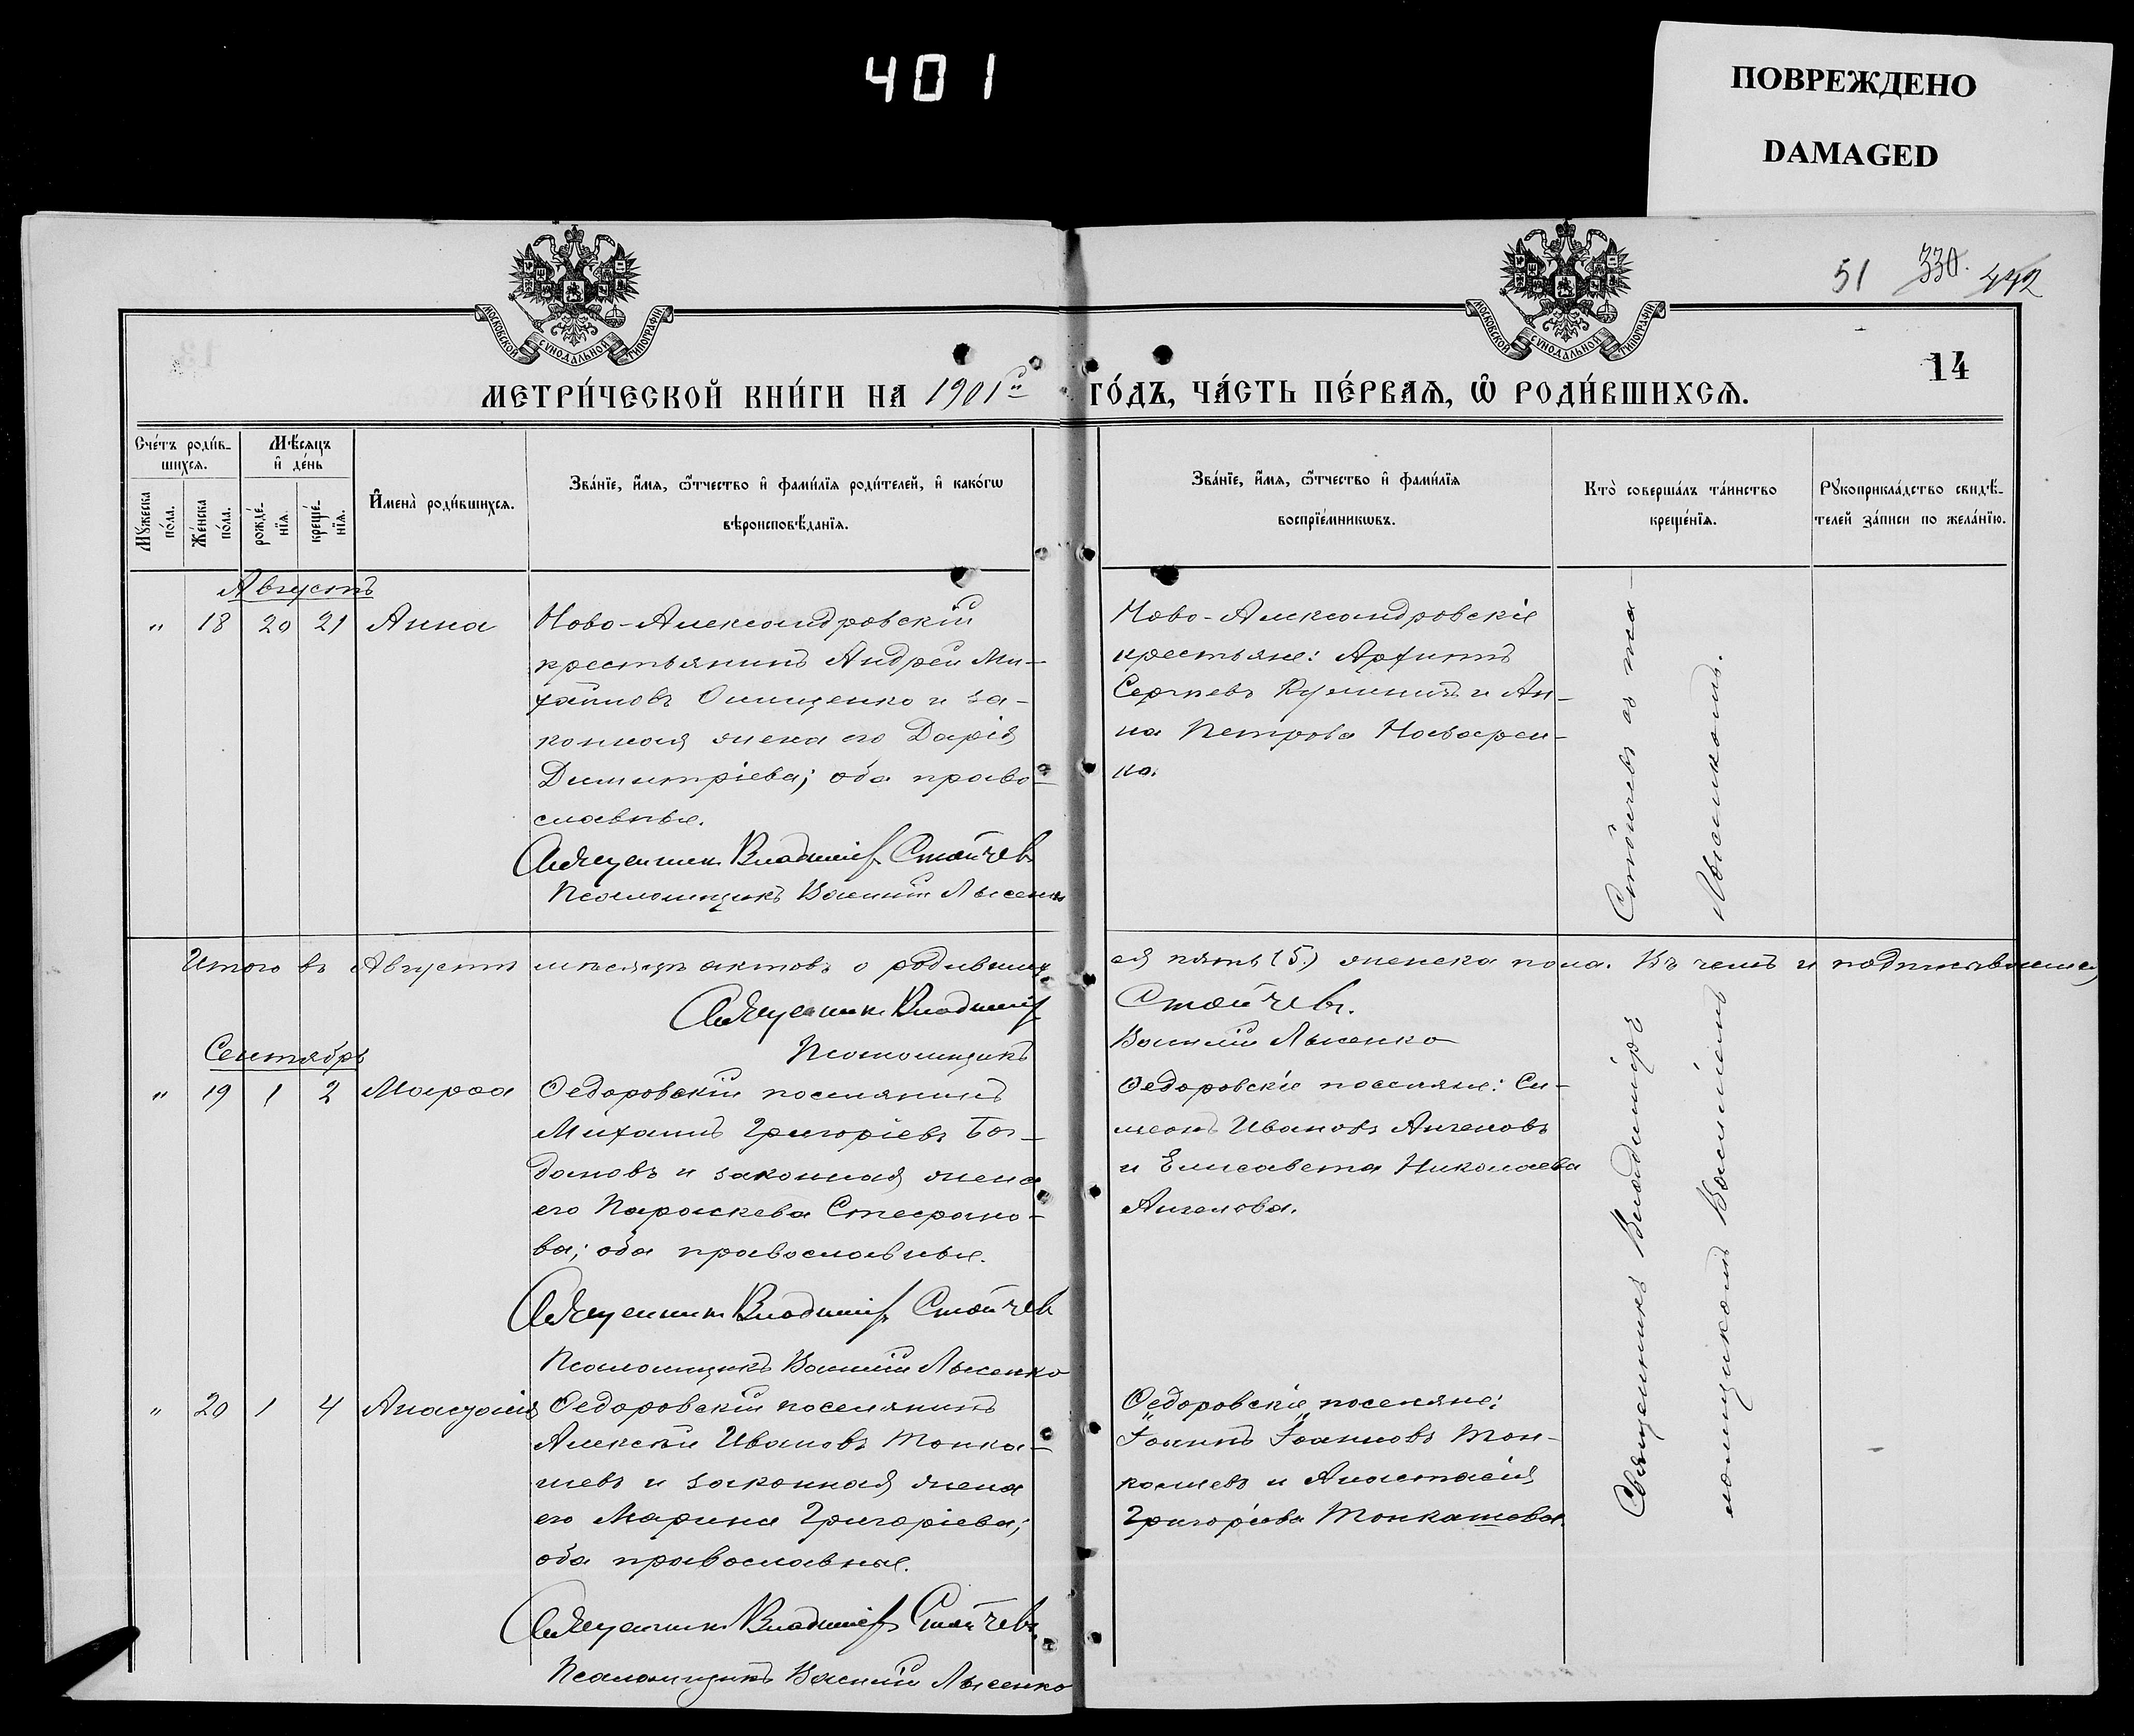 401
ПОВРЕЖДЕНО
DAMAGED
51 330. 442
14
МОСКОВСКОЙ СѴНОДАЛЬНОЙ ТИПОГРАФІИ
МОСКОВСКОЙ СѴНОДАЛЬНОЙ ТИПОГРАФІИ
МЕТРИ́ЧЕСКОЙ КНИ́ГИ НА 1901й ГО́ДЪ, ЧА́СТЬ ПЕ́РВАѦ, Ѡ҆ РОДИ́ВШИХСѦ.
Сче́тъ роди́в-
шихсѧ.
Мѣ́сѧцъ
и҆ де́нь
Мꙋ́жеска
по́ла.
Же́нска
по́ла.
рожде́-
нїѧ.
креще́-
нїѧ.
И҆мена̀ роди́вшихсѧ.
Зва́нїе, и҆́мѧ, ѻ҆́тчество и҆ фами́лїѧ роди́телей, и҆ како́гѡ
вѣроисповѣ́данїѧ.
Зва́нїе, и҆́мѧ, ѻ҆́тчество и҆ фами́лїѧ
воспрїе́мникѡвъ.
Кто̀ соверша́лъ та́инство
креще́нїѧ.
Рꙋкоприкла́дство свидѣ́-
телей за́писи по жела́нїю.
Августъ
" 18 20 21 Анна
Ново-Александровскій
крестьянинъ Андрей Ми-
хайловъ Онищенко и за-
конная жена его Дарія
Димитріева; оба право-
славные.
Священникъ Владиміръ Стойчевъ
Псаломщикъ Василій Лысенко
Ново-Александровскіе
крестьяне:
Сергѣевъ и Ан-
на Петрова
ко.
Итого въ Августѣ мѣсяцѣ актовъ о родивших
ся пять (5.) женска пола. Въ чемъ и подписываемся
Священникъ Владиміръ Стойчевъ.
Псаломщикъ Василій Лысенко
Сентябрь
" 19 1 2 Марѳа
Ѳедоровскій поселянинъ
Михаилъ Григоріевъ Бог-
дановъ и законная жена
его Параскева Стефано-
ва; оба православные.
Священникъ Владиміръ Стойчевъ
Псаломщикъ Василій Лысенко
Ѳедоровскіе поселяне: Си-
меонъ Ивановъ Ангеловъ
и Елисавета Николаева
Ангелова.
" 20 1 4 Анастасія
Ѳедоровскій поселянинъ
Алексѣй Ивановъ Тонка-
шевъ и законная жена
его Марина Григоріева;
оба православные.
Священникъ Владиміръ Стойчевъ.
Псаломщикъ Василій Лысенко
Ѳедоровскіе поселяне:
Іоаннъ Іоанновъ Тон-
кашевъ и Анастасія
Григоріева Тонкашева.
Священникъ Владиміръ Стойчевъ съ пса-
ломщикомъ Василіемъ Лысенкомъ.